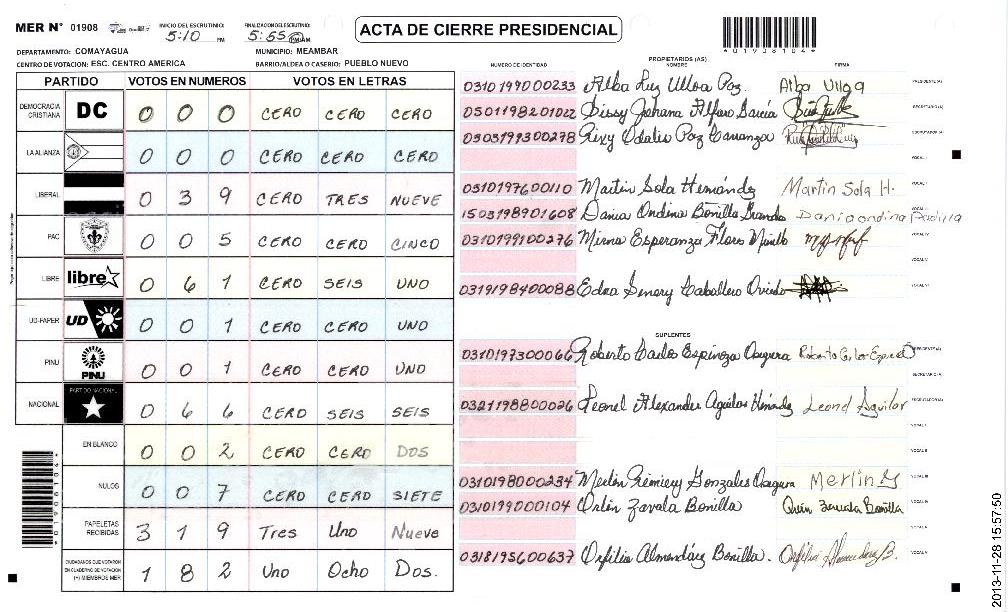 MER N° 01908 INICIO DEL ESCRUTINIO: 5:10 PM FINALIZACION ESCRUTINIO: 5:55 AM
ACTA DE CIERRE PRESIDENCIAL
*01908104*
DEPARTAMENTO: COMAYAGUA MUNICIPIO: MEAMBAR
CENTRO DE VOTACION: ESC. CENTRO AMERICA BARRIO/ALDEA O CASERIO: PUEBLO NUEVO
PARTIDO VOTOS EN NUMEROS VOTOS EN LETRAS
DEMOCRACIA CRISTIANA DC 0 0 0 CERO CERO CERO
LA ALIANZA 0 0 0 CERO CERO CERO
LIBERAL 0 3 9 CERO TRES NUEVE
PAC 0 0 5 CERO CERO CINCO
LIBRE libre 0 6 1 CERO SEIS UNO
UD-FAPER UD 0 0 1 CERO CERO UNO
PINU PINU 0 0 1 CERO CERO UNO
NACIONAL PARTIDO NACIONAL 0 6 6 CERO SEIS SEIS
EN BLANCO 0 0 2 CERO CERO DOS
NULOS 0 0 7 CERO CERO SIETE
PAPELETAS RECIBIDAS 3 1 9 Tres Uno Nueve
CIUDADANOS QUE VOTARON EN CUADERNO DE VOTACION (+) MIEMBROS MER 1 8 2 Uno Ocho Dos.
PROPIETARIOS (AS)
NUMERO DE IDENTIDAD NOMBRE FIRMA
0310199000233 Alba Luz Ulloa Paz. Alba Ulloa PRESIDENTE(A)
0501198201022 Sissy Johana Alfaro García SECRETARIO(A)
0303199300278 Rixy Odalis Paz Carranza ESCRUTADOR(A)
VOCAL I
0310197600110 Martin Sola Hernández Martin Sola H.
1503198901608 Dania Ondina Bonilla Dania ondina Padilla
0310199100276 Mirna Esperanza Flores Murillo VOCAL IV
VOCAL V
0319198400088 Edna Caballero Oviedo
SUPLENTES
0310197300066 Roberto Carlos Espinoza Roberto Carlos PRESIDENTE(A)
SECRETARIO(A)
0321198800026 Leonel Alexander Aguilar Hernández Leonel Aguilar ESCRUTADOR(A)
VOCAL I
VOCAL II
0310198000234 Merlin Gonzales Merlin G VOCAL III
0310199000104 Orlin Zavala Bonilla Orlin Zavala Bonilla VOCAL IV
0318195600637 Orfilia Almendáz Bonilla. Orfilia B.
*01908104*
2013-11-28 15:57:50